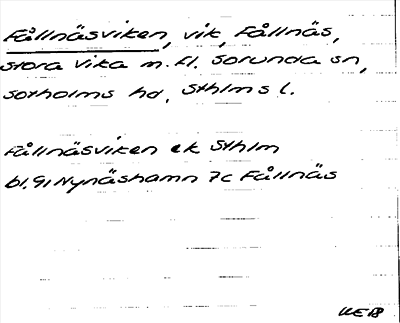 Fållnäsviken, vik, Fållnäs,
Stora Vika m.fl. Sorunda sn,
Sotholms hd, Sthlms l.
Fållnäsviken ek Sthlm
bl.91 Nynäshamn 7c Fållnäs